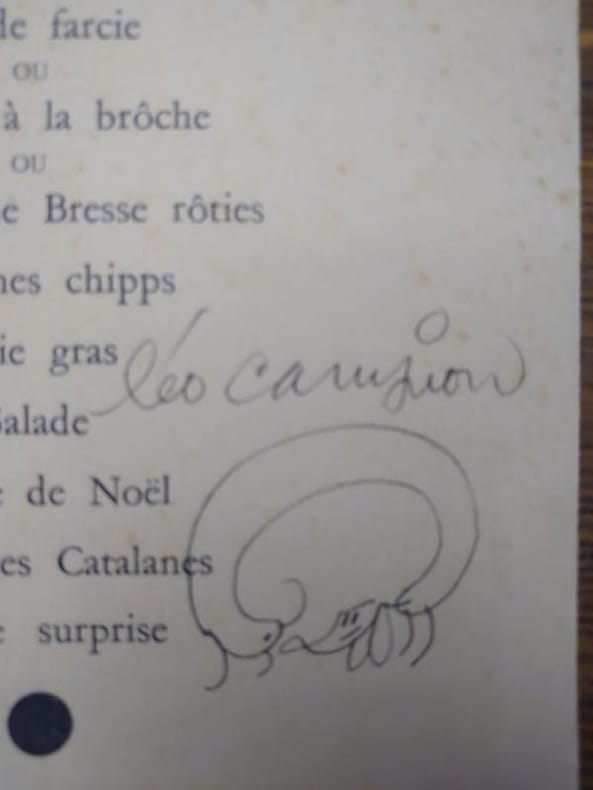 de farcie
OU
à la brôche
OU
e Bresse rôties
nes chipps
ie gras
léo campion
Salade
e de Noël
es Catalanes
e surprise